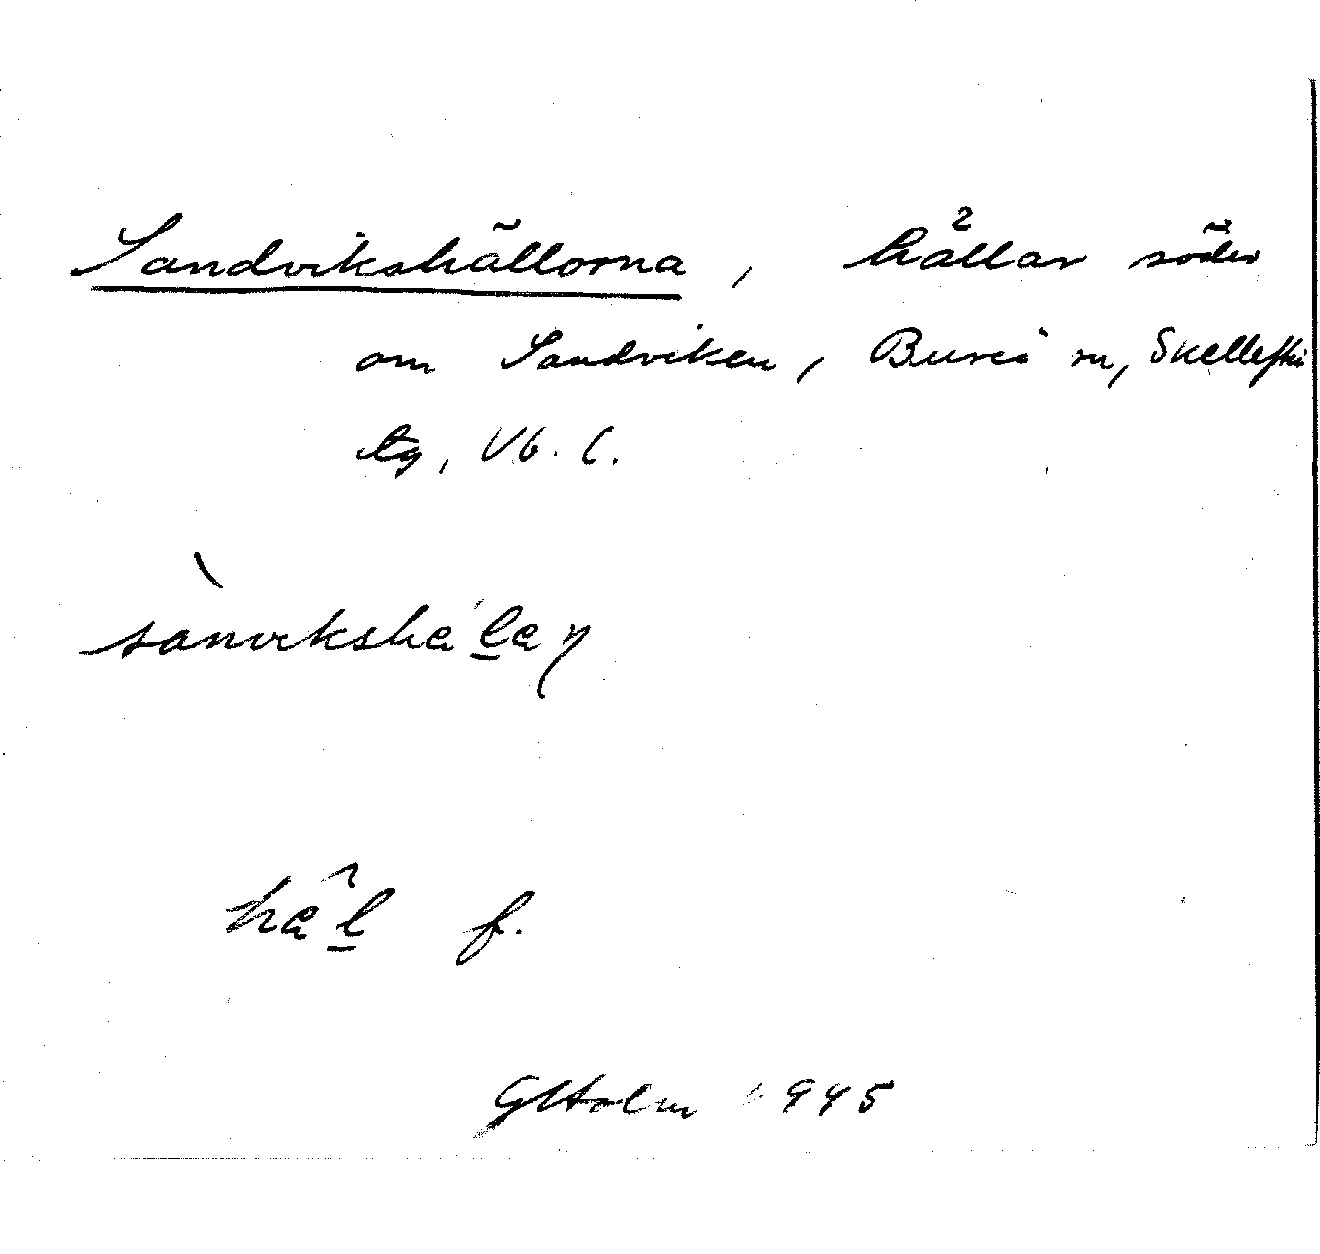 Sandvikshällorna, hällar söder
om Sandviken, Bureå sn, Skellefteå
tg, Vb. l.
sanvikshälaŋ
häl f.
GHolm 1945